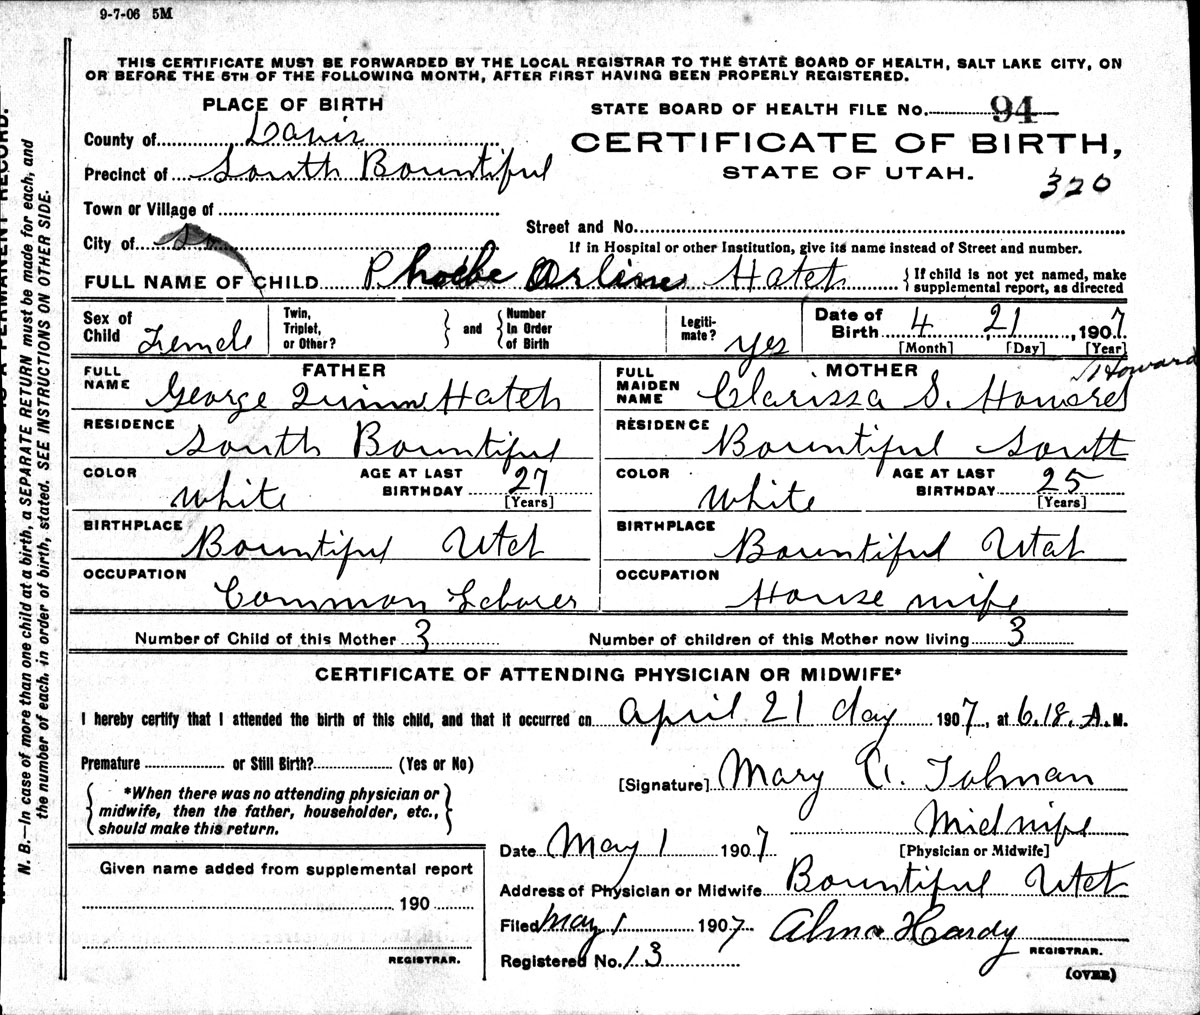 9-7-06 5M
THIS CERTIFICATE MUST BE FORWARDED BY THE LOCAL REGISTRAR TO THE STATE BOARD OF HEALTH, SALT LAKE CITY, ON
OR BEFORE THE 5TH OF THE FOLLOWING MONTH, AFTER FIRST HAVING BEEN PROPERLY REGISTERED.
PLACE OF BIRTH
STATE BOARD OF HEALTH FILE No. 94
County of Davis
CERTIFICATE OF BIRTH,
Precinct of South Bountiful
STATE OF UTAH.
320
Town or Village of
Street and No.
City of
If in Hospital or other Institution, give its name instead of Street and number.
FULL NAME OF CHILD Phoebe Orline Hatch
{If child is not yet named, make
supplemental report, as directed
Sex of Child Female
Twin, Triplet, or Other? } and { Number In Order of Birth
Legiti-mate? yes
Date of Birth 4 21, 1907
[Month] [Day] [Year]
FATHER
FULL NAME George Quinn Hatch
RESIDENCE South Bountiful
COLOR White
AGE AT LAST BIRTHDAY 27 [Years]
BIRTHPLACE Bountiful Utah
OCCUPATION Common Laborer
MOTHER
Howard
FULL MAIDEN NAME Clarissa S. Howard
RESIDENCE Bountiful South
COLOR White
AGE AT LAST BIRTHDAY 25 [Years]
BIRTHPLACE Bountiful Utah
OCCUPATION House wife
Number of Child of this Mother 3 Number of children of this Mother now living 3
CERTIFICATE OF ATTENDING PHYSICIAN OR MIDWIFE*
I hereby certify that I attended the birth of this child, and that it occurred on April 21 day 1907, at 6.18. A.M.
Premature or Still Birth? (Yes or No)
[Signature] Mary A. Tolman
*When there was no attending physician or
midwife, then the father, householder, etc.,
should make this return.
Midwife
[Physician or Midwife]
Date May 1 1907
Address of Physician or Midwife Bountiful Utah
Given name added from supplemental report
190
REGISTRAR.
Filed May 1 1907 Alma Hardy
REGISTRAR.
Registered No. 13
(OVER)
N. B.—In case of more than one child at a birth, a SEPARATE RETURN must be made for each, and
the number of each, in order of birth, stated. SEE INSTRUCTIONS ON OTHER SIDE.
IS A PERMANENT RECORD.